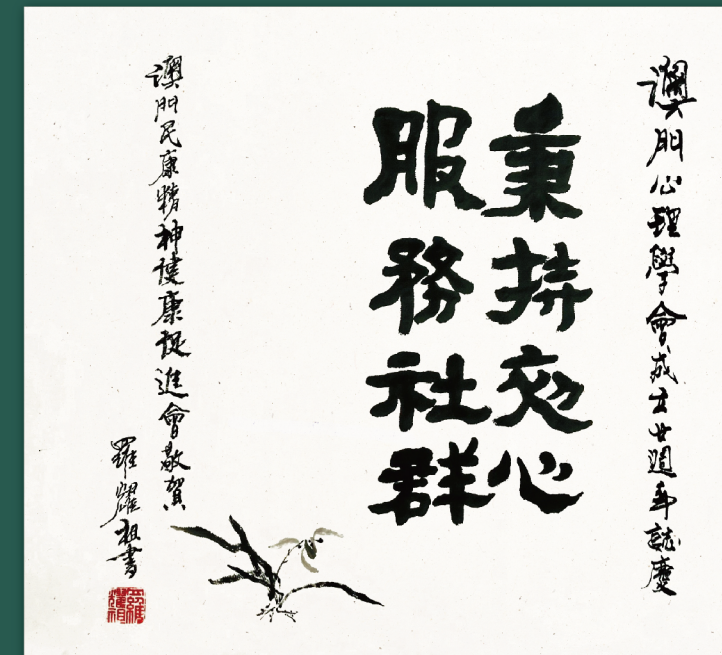 澳門心理學會成立廿週年誌慶
秉持初心
服務社群
澳門民康精神健康促進會敬賀
羅耀祖書